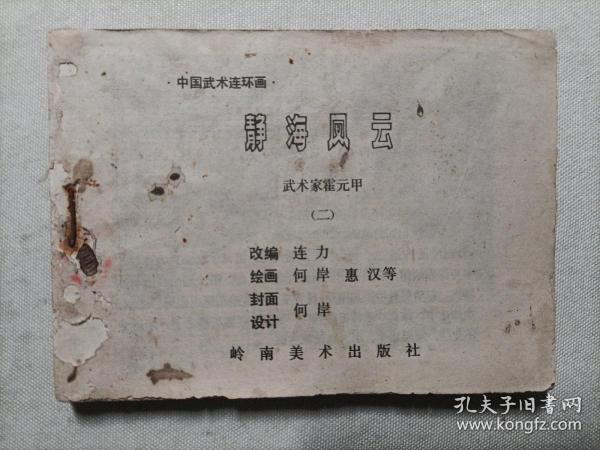 ·中国武术连环画·
静海风云
武术家霍元甲
(二)
改编 连力
绘画 何岸 惠汉等
封面
设计 何岸
岭南美术出版社
孔夫子旧书网
www.kongfz.com